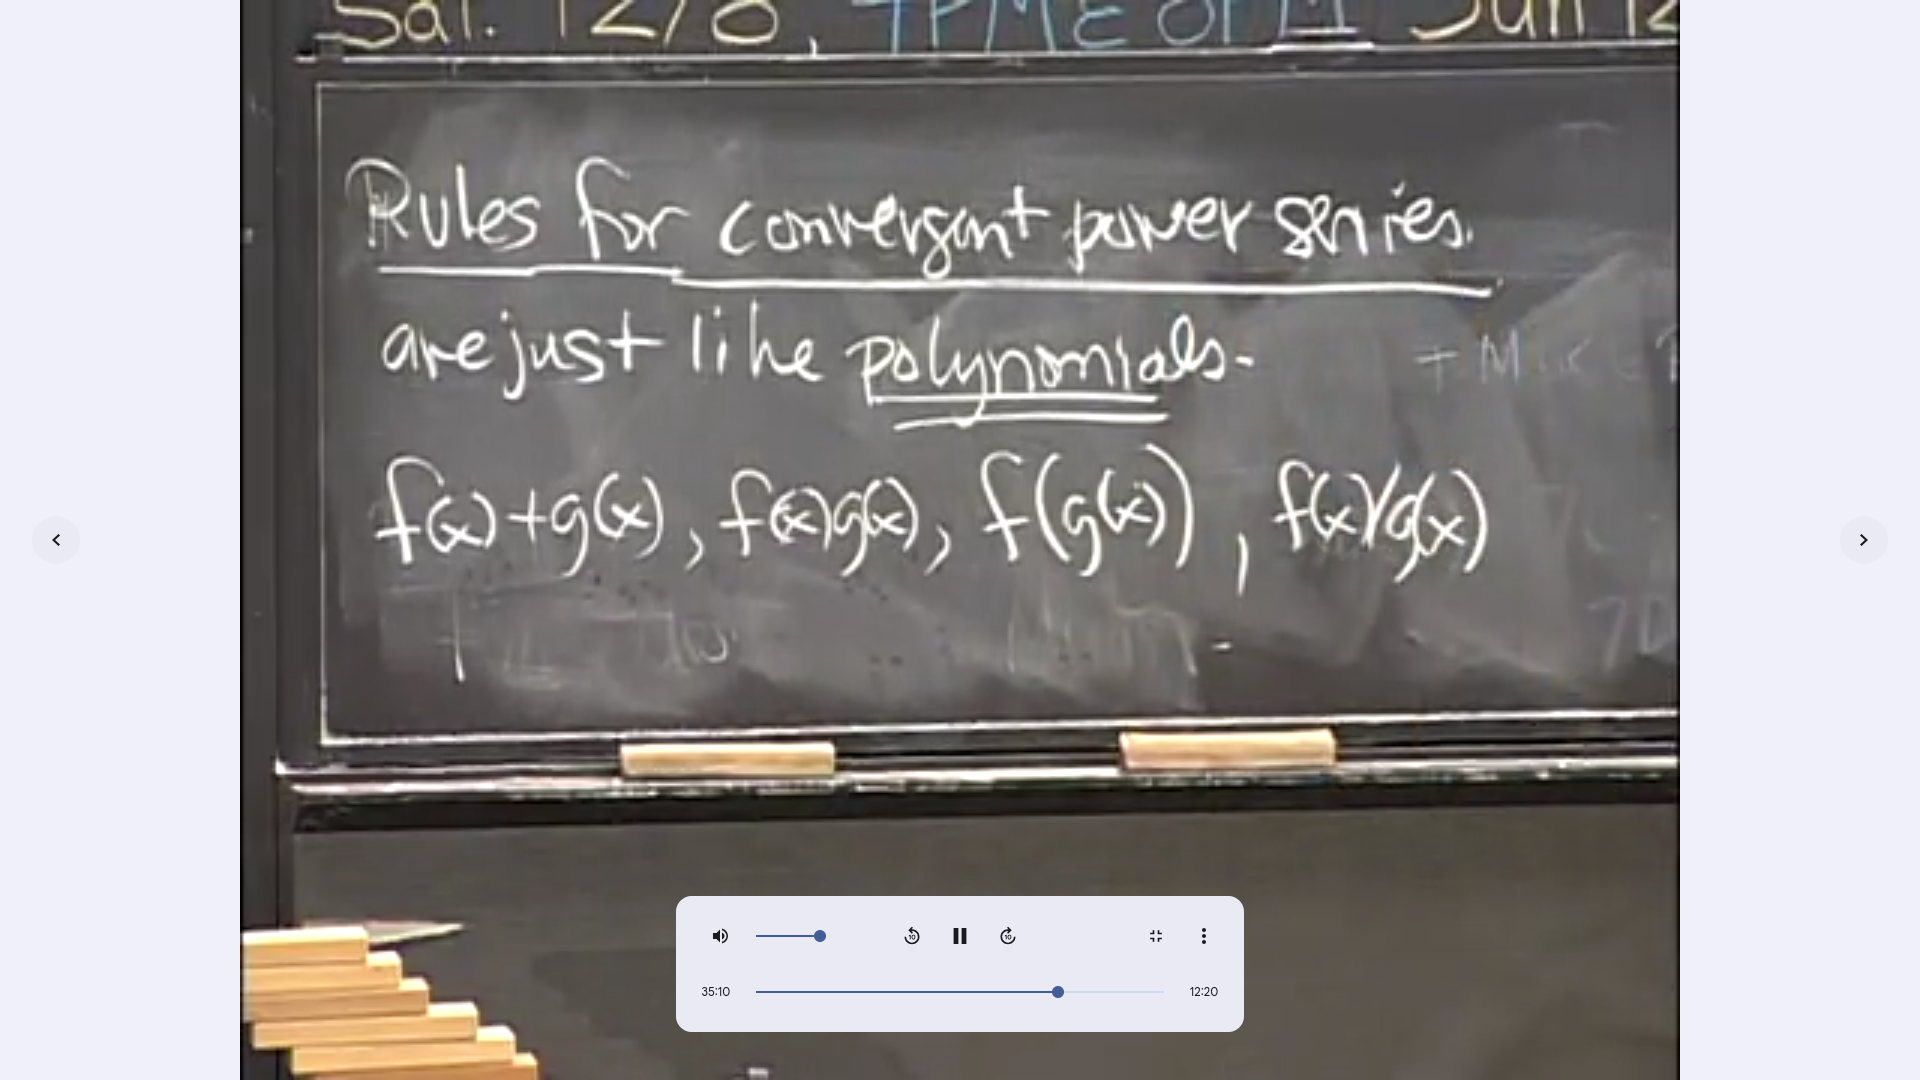 Sat. 12/8, 4PM E of M Sun 12
Rules for convergent power series.
are just like polynomials.
f(x)+g(x), f(x)g(x), f(g(x)), f(x)/g(x)
35:10 12:20